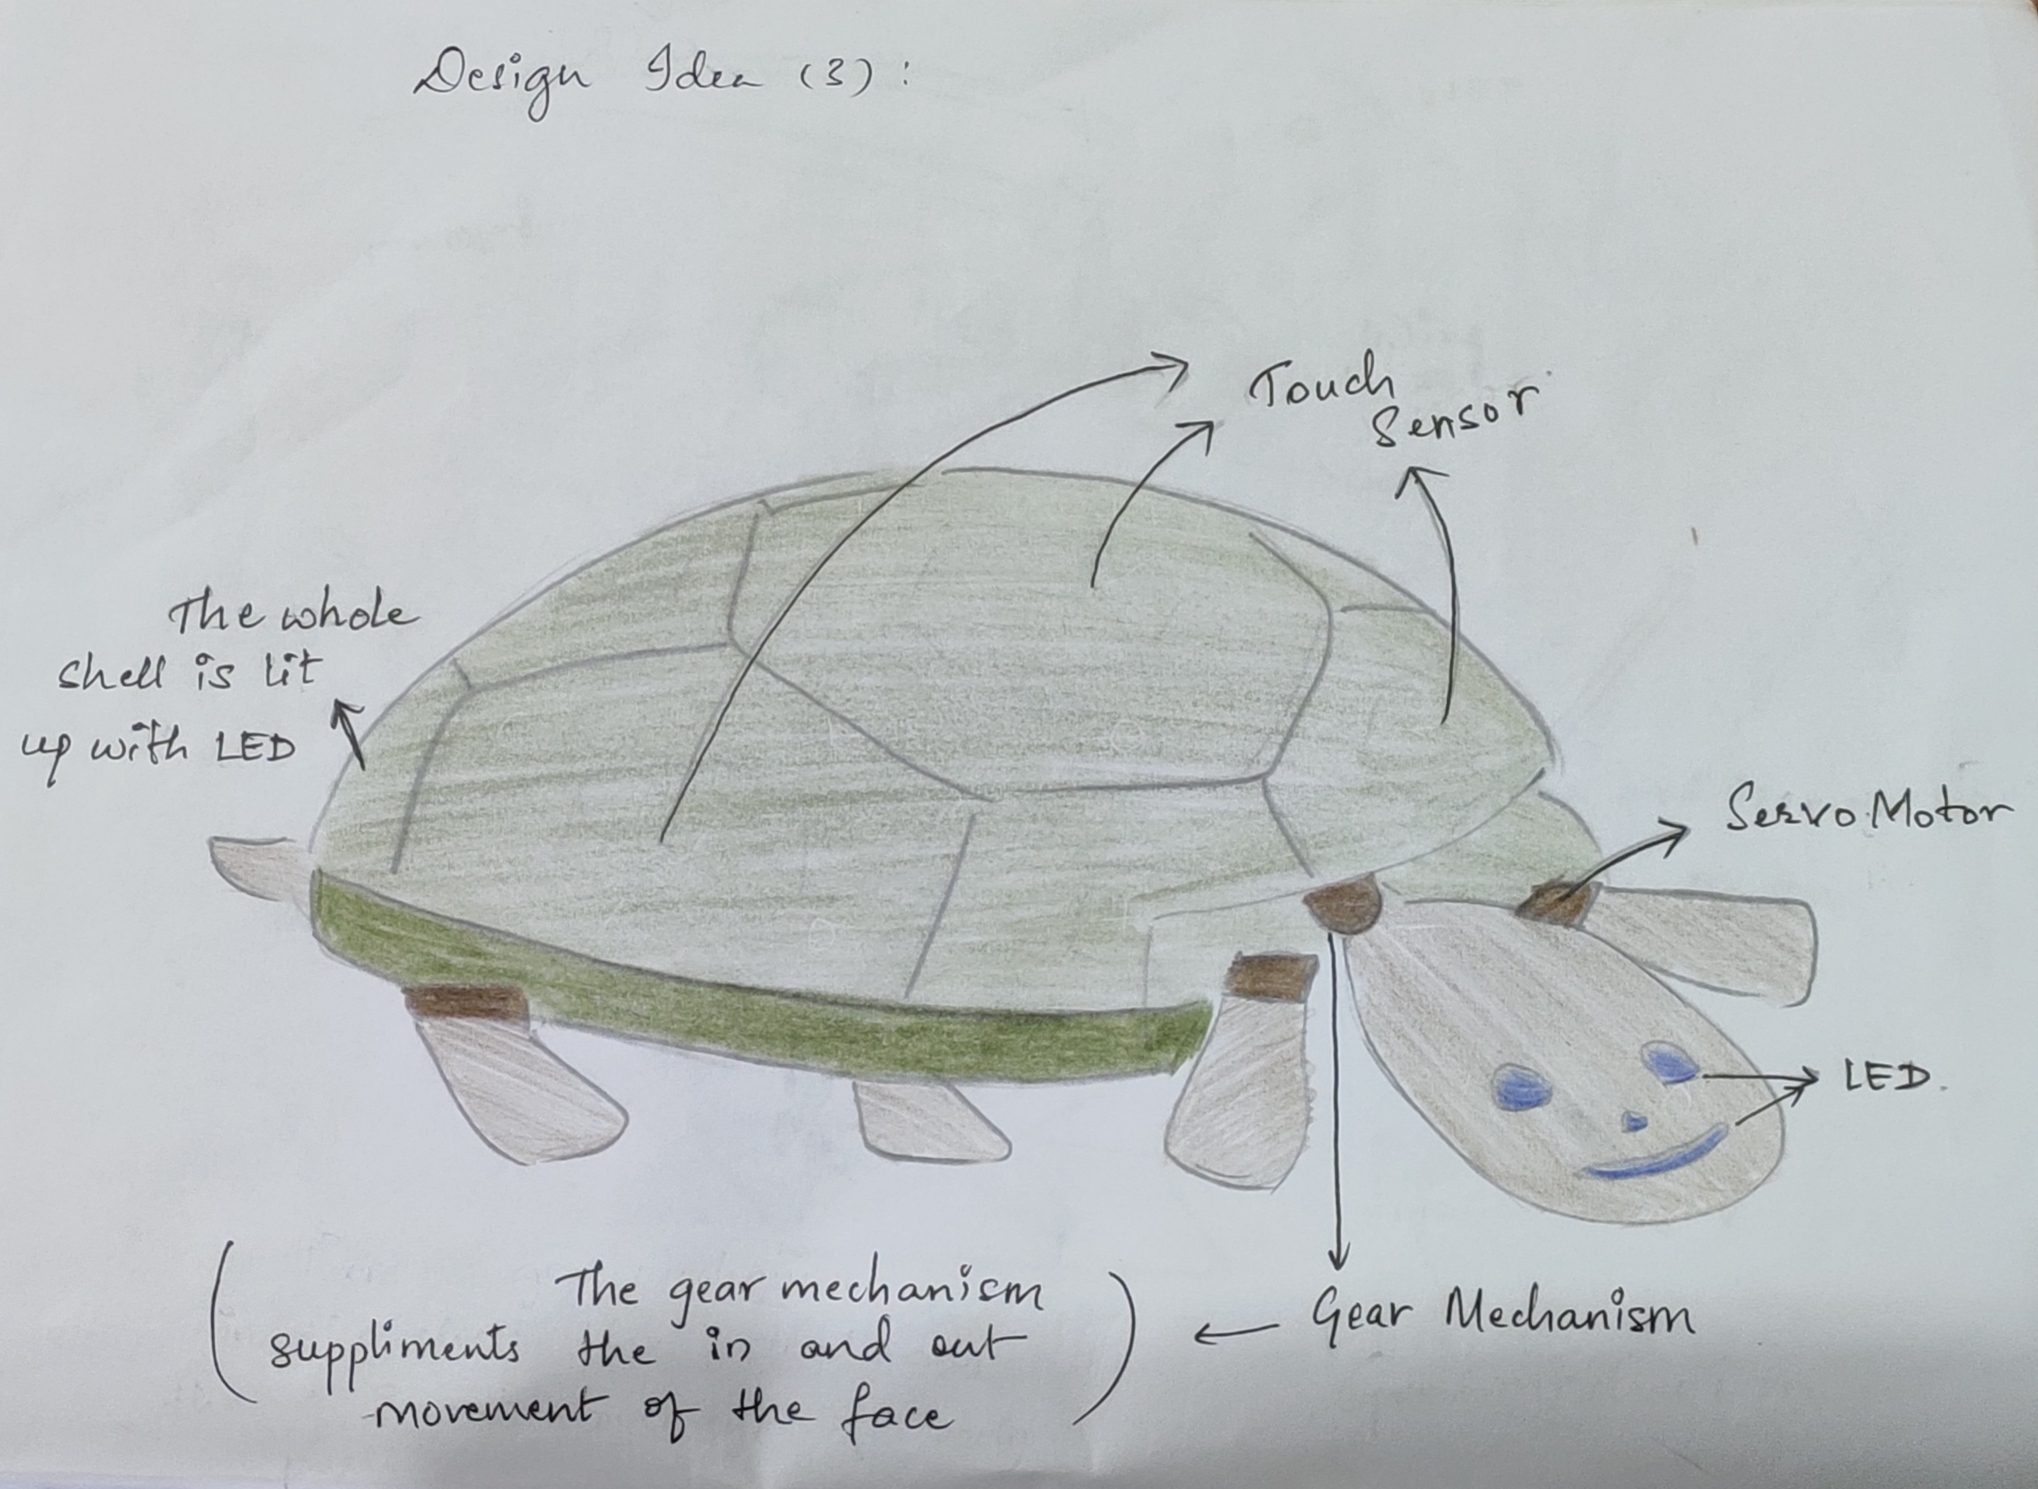 Design Idea (3) :
Touch
Sensor
The whole
shell is lit
up with LED
Servo Motor
LED.
Gear Mechanism
The gear mechanism
suppliments the in and out
movement of the face